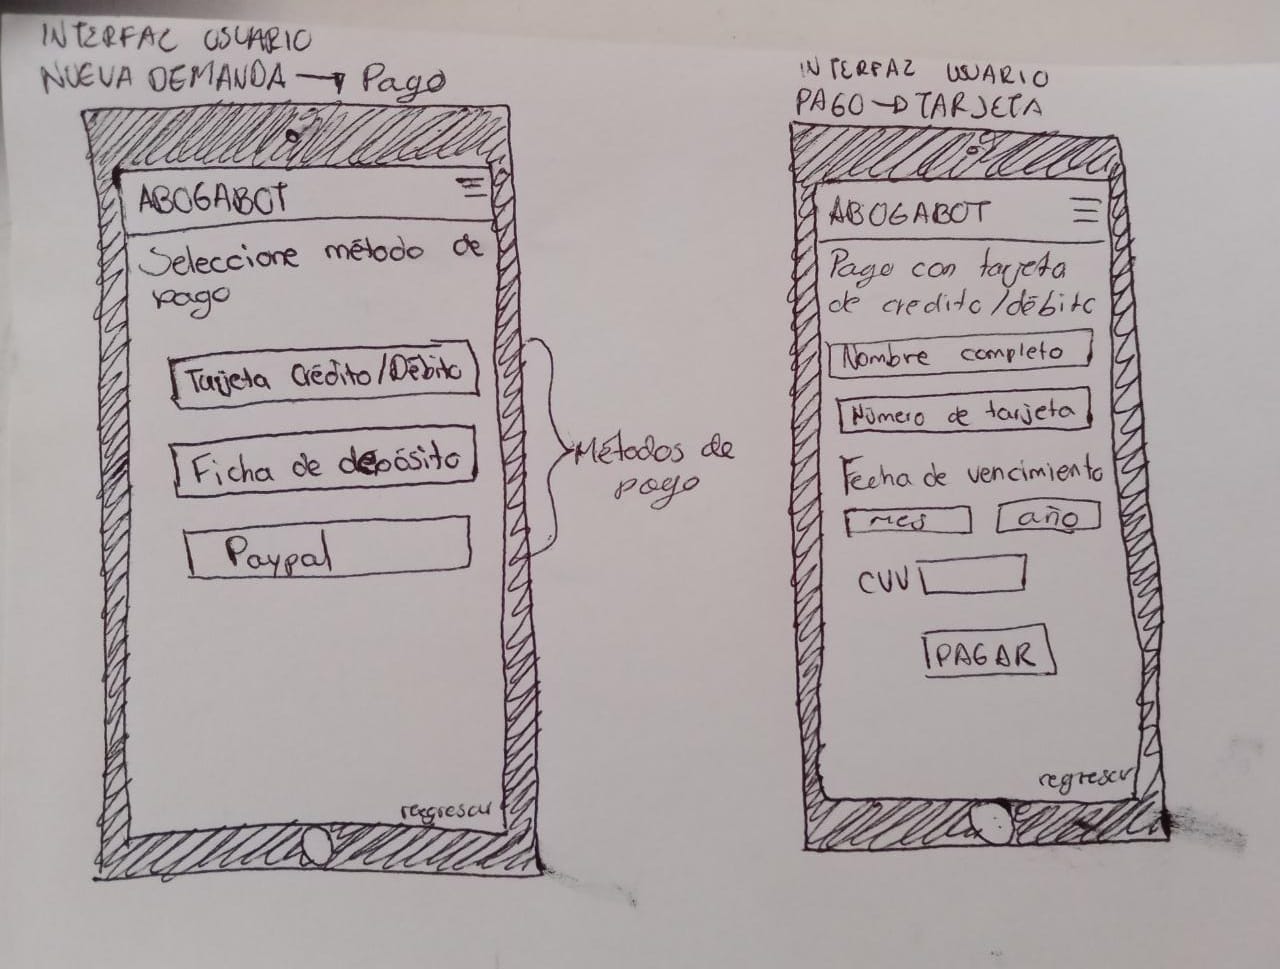 INTERFAC USUARIO
NUEVA DEMANDA → Pago
ABOGABOT
Seleccione método de
pago
Tarjeta Crédito/Débito
Ficha de depósito
Paypal
Métodos de
pago
regresar
INTERFAZ USUARIO
PAGO → TARJETA
ABOGABOT
Pago con tarjeta
de credito/débito
Nombre completo
Número de tarjeta
Fecha de vencimiento
mes año
CVV
PAGAR
regresar